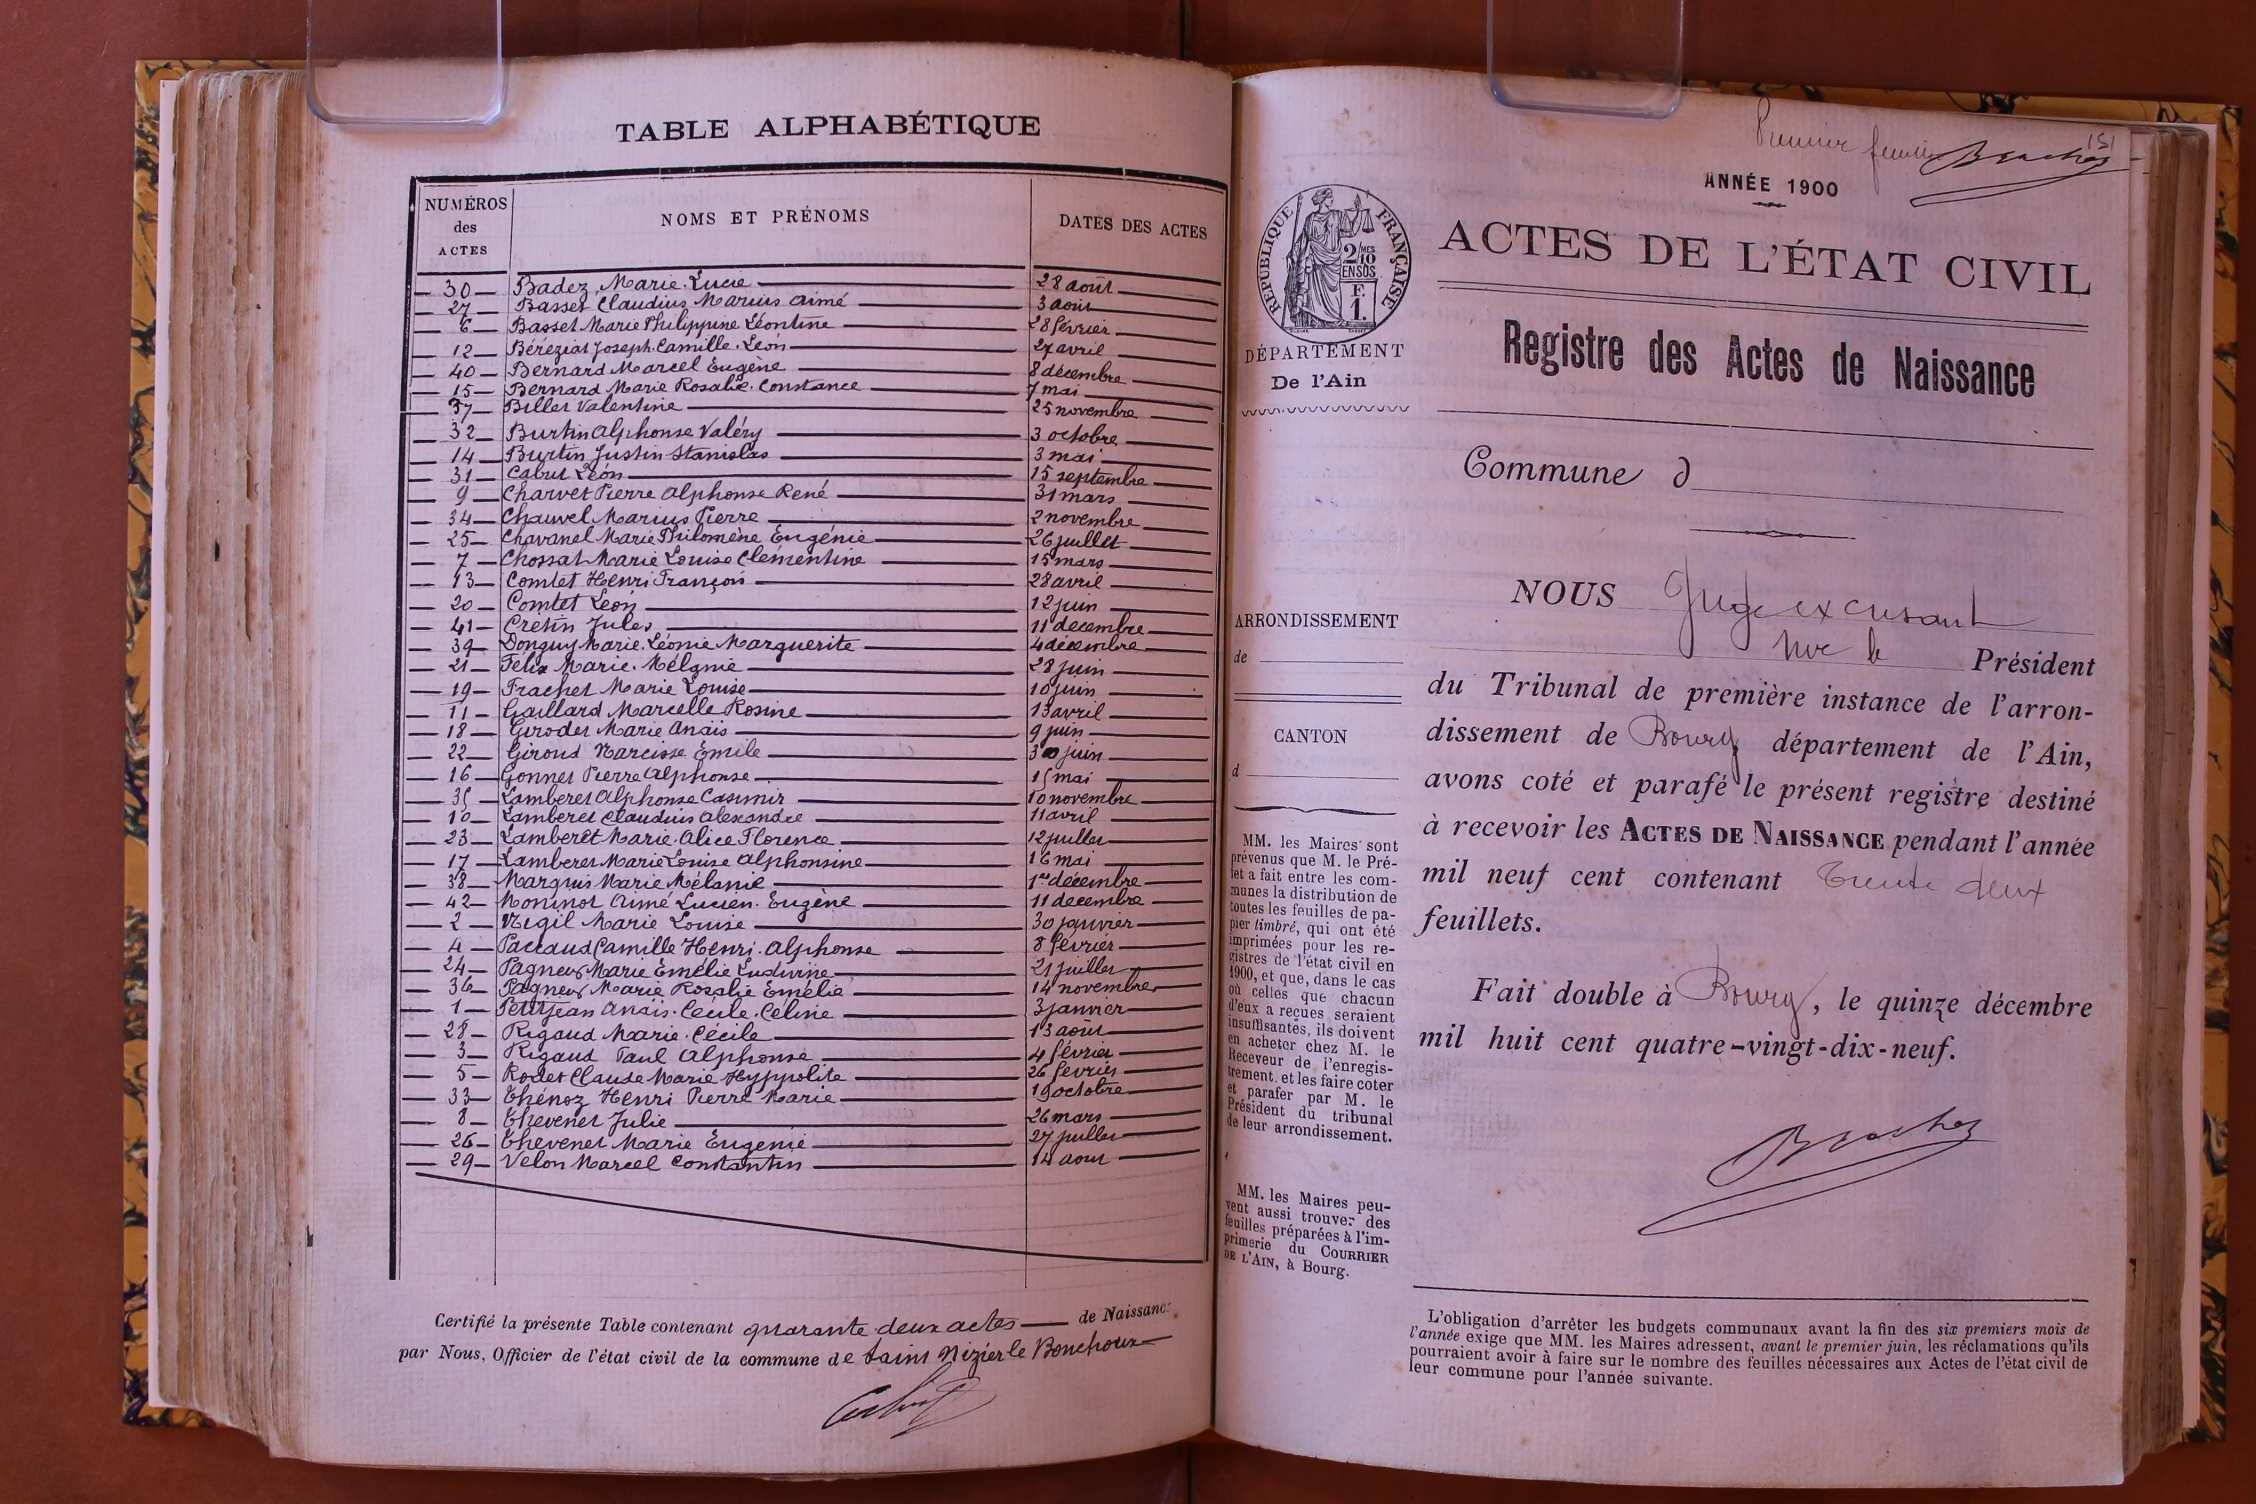 TABLE ALPHABÉTIQUE
NUMÉROS des ACTES NOMS ET PRÉNOMS DATES DES ACTES
30 Badez Marie Lucie 28 août
27 Basset Claudius Marius Aimé 3 août
6 Basset Marie Philippine Léontine 28 février
12 Béréziat Joseph Camille Léon 27 avril
40 Bernard Marcel Eugène 8 décembre
15 Bernard Marie Rosalie Constance 7 mai
37 Billet Valentine 25 novembre
32 Burtin Alphonse Valéry 3 octobre
14 Burtin Justin Stanislas 3 mai
31 Cabut Léon 15 septembre
9 Charvet Pierre Alphonse René 31 mars
34 Chauvel Marius Pierre 2 novembre
25 Chavanel Marie Philomène Eugénie 26 juillet
7 Chossat Marie Louise Clémentine 15 mars
13 Comtet Henri François 28 avril
20 Comtet Léon 12 juin
41 Cretin Jules 11 décembre
39 Donguy Marie Léonie Marguerite 4 décembre
21 Félix Marie Mélanie 28 juin
19 Frachet Marie Louise 10 juin
11 Gaillard Marcelle Rosine 13 avril
18 Girodet Marie Anaïs 9 juin
22 Giroud Narcisse Emile 30 juin
16 Gonnet Pierre Alphonse 15 mai
35 Lamberet Alphonse Casimir 10 novembre
10 Lamberet Claudius Alexandre 11 avril
23 Lamberet Marie Alice Florence 12 juillet
17 Lamberet Marie Louise Alphonsine 16 mai
38 Marquis Marie Mélanie 1er décembre
42 Moninot Aimé Lucien Eugène 11 décembre
2 Nigil Marie Louise 30 janvier
4 Paccaud Camille Henri Alphonse 8 février
24 Pagneux Marie Emélie Ludivine 21 juillet
36 Pagneux Marie Rosalie Emélie 14 novembre
1 Petitjean Anaïs Cécile Céline 3 janvier
28 Rigaud Marie Cécile 13 août
3 Rigaud Paul Alphonse 4 février
5 Rodet Claude Marie Hyppolite 26 février
33 Thénoz Henri Pierre Marie 19 octobre
8 Thevenet Julie 26 mars
26 Thevenet Marie Eugenie 27 juillet
29 Velon Marcel Constantin 14 aout
Certifié la présente Table contenant quarante deux actes de Naissance
par Nous, Officier de l'état civil de la commune de Saint Nizier le Bouchoux
Premier feuillet 151
ANNÉE 1900
ACTES DE L'ÉTAT CIVIL
Registre des Actes de Naissance
RÉPUBLIQUE FRANÇAISE
2/10 MES
EN SUS
F.
1.
DÉPARTEMENT
De l'Ain
ARRONDISSEMENT
de
CANTON
d
MM. les Maires sont
prévenus que M. le Pré-
fet a fait entre les com-
munes la distribution de
toutes les feuilles de pa-
pier timbré, qui ont été
imprimées pour les re-
gistres de l'état civil en
1900, et que, dans le cas
où celles que chacun
d'eux a reçues seraient
insuffisantes, ils doivent
en acheter chez M. le
Receveur de l'enregis-
trement, et les faire coter
et parafer par M. le
Président du tribunal
de leur arrondissement.
MM. les Maires peu-
vent aussi trouver des
feuilles préparées à l'im-
primerie du COURRIER
DE L'AIN, à Bourg.
Commune d
NOUS Juge excusant
Mr le Président
du Tribunal de première instance de l'arron-
dissement de Bourg département de l'Ain,
avons coté et parafé le présent registre destiné
à recevoir les ACTES DE NAISSANCE pendant l'année
mil neuf cent contenant trente deux
feuillets.
Fait double à Bourg, le quinze décembre
mil huit cent quatre-vingt-dix-neuf.
L'obligation d'arrêter les budgets communaux avant la fin des six premiers mois de
l'année exige que MM. les Maires adressent, avant le premier juin, les réclamations qu'ils
pourraient avoir à faire sur le nombre des feuilles nécessaires aux Actes de l'état civil de
leur commune pour l'année suivante.